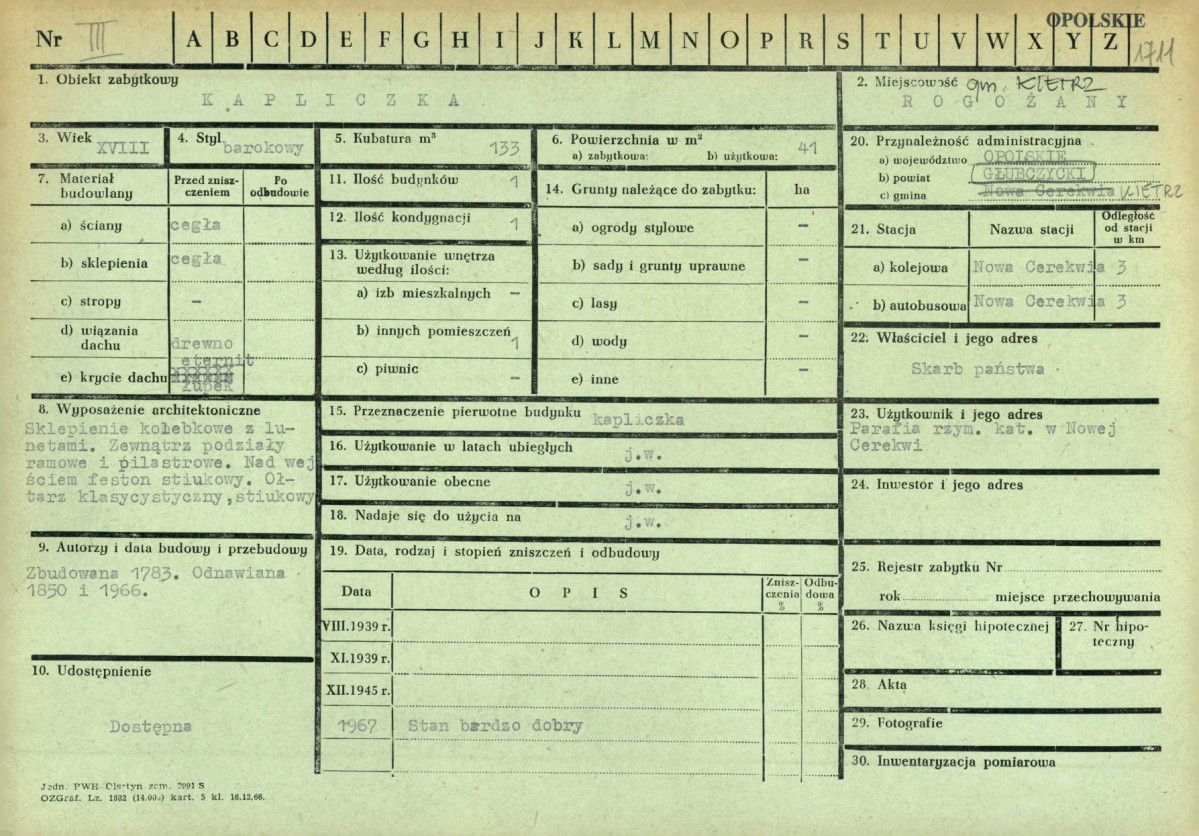 OPOLSKIE
Nr III A B C D E F G H I J K L M N O P R S T U V W X Y Z 1711
1. Obiekt zabytkowy
KAPLICZKA
2. Miejscowość gm. KIETRZ
ROGOŻANY
3. Wiek XVIII
4. Styl barokowy
5. Kubatura m³ 133
6. Powierzchnia w m²
a) zabytkowa: b) użytkowa: 41
20. Przynależność administracyjna
a) województwo OPOLSKIE
b) powiat GŁUBCZYCKI
c) gmina Nowa Cerekwia KIETRZ
7. Materiał budowlany
Przed zniszczeniem
Po odbudowie
a) ściany cegła
b) sklepienia cegła
c) stropy -
d) wiązania dachu drewno
eternit
e) krycie dachu
łupek
11. Ilość budynków 1
12. Ilość kondygnacji 1
13. Użytkowanie wnętrza
według ilości:
a) izb mieszkalnych -
b) innych pomieszczeń 1
c) piwnic -
14. Grunty należące do zabytku: ha
a) ogrody stylowe -
b) sady i grunty uprawne -
c) lasy -
d) wody -
e) inne -
21. Stacja Nazwa stacji Odległość od stacji w km
a) kolejowa Nowa Cerekwia 3
b) autobusowa Nowa Cerekwia 3
22. Właściciel i jego adres
Skarb państwa
8. Wyposażenie architektoniczne
Sklepienie kolebkowe z lu-
netami. Zewnątrz podziały
ramowe i pilastrowe. Nad wej
ściem feston stiukowy. Oł-
tarz klasycystyczny, stiukowy
15. Przeznaczenie pierwotne budynku kapliczka
16. Użytkowanie w latach ubiegłych j.w.
17. Użytkowanie obecne j.w.
18. Nadaje się do użycia na j.w.
23. Użytkownik i jego adres
Parafia rzym. kat. w Nowej
Cerekwi
24. Inwestor i jego adres
9. Autorzy i data budowy i przebudowy
Zbudowana 1783. Odnawiana
1850 i 1966.
19. Data, rodzaj i stopień zniszczeń i odbudowy
Data OPIS Zniszczenia % Odbudowa %
VIII.1939 r.
XI.1939 r.
XII.1945 r.
1967 Stan bardzo dobry
25. Rejestr zabytku Nr
rok miejsce przechowywania
26. Nazwa księgi hipotecznej
27. Nr hipo-
teczny
10. Udostępnienie
Dostępna
28. Akta
29. Fotografie
30. Inwentaryzacja pomiarowa
Jedn. PWR Olsztyn zam. 2991 S
OZGraf. Lz. 1882 (14.000) kart. 5 kl. 16.12.66.